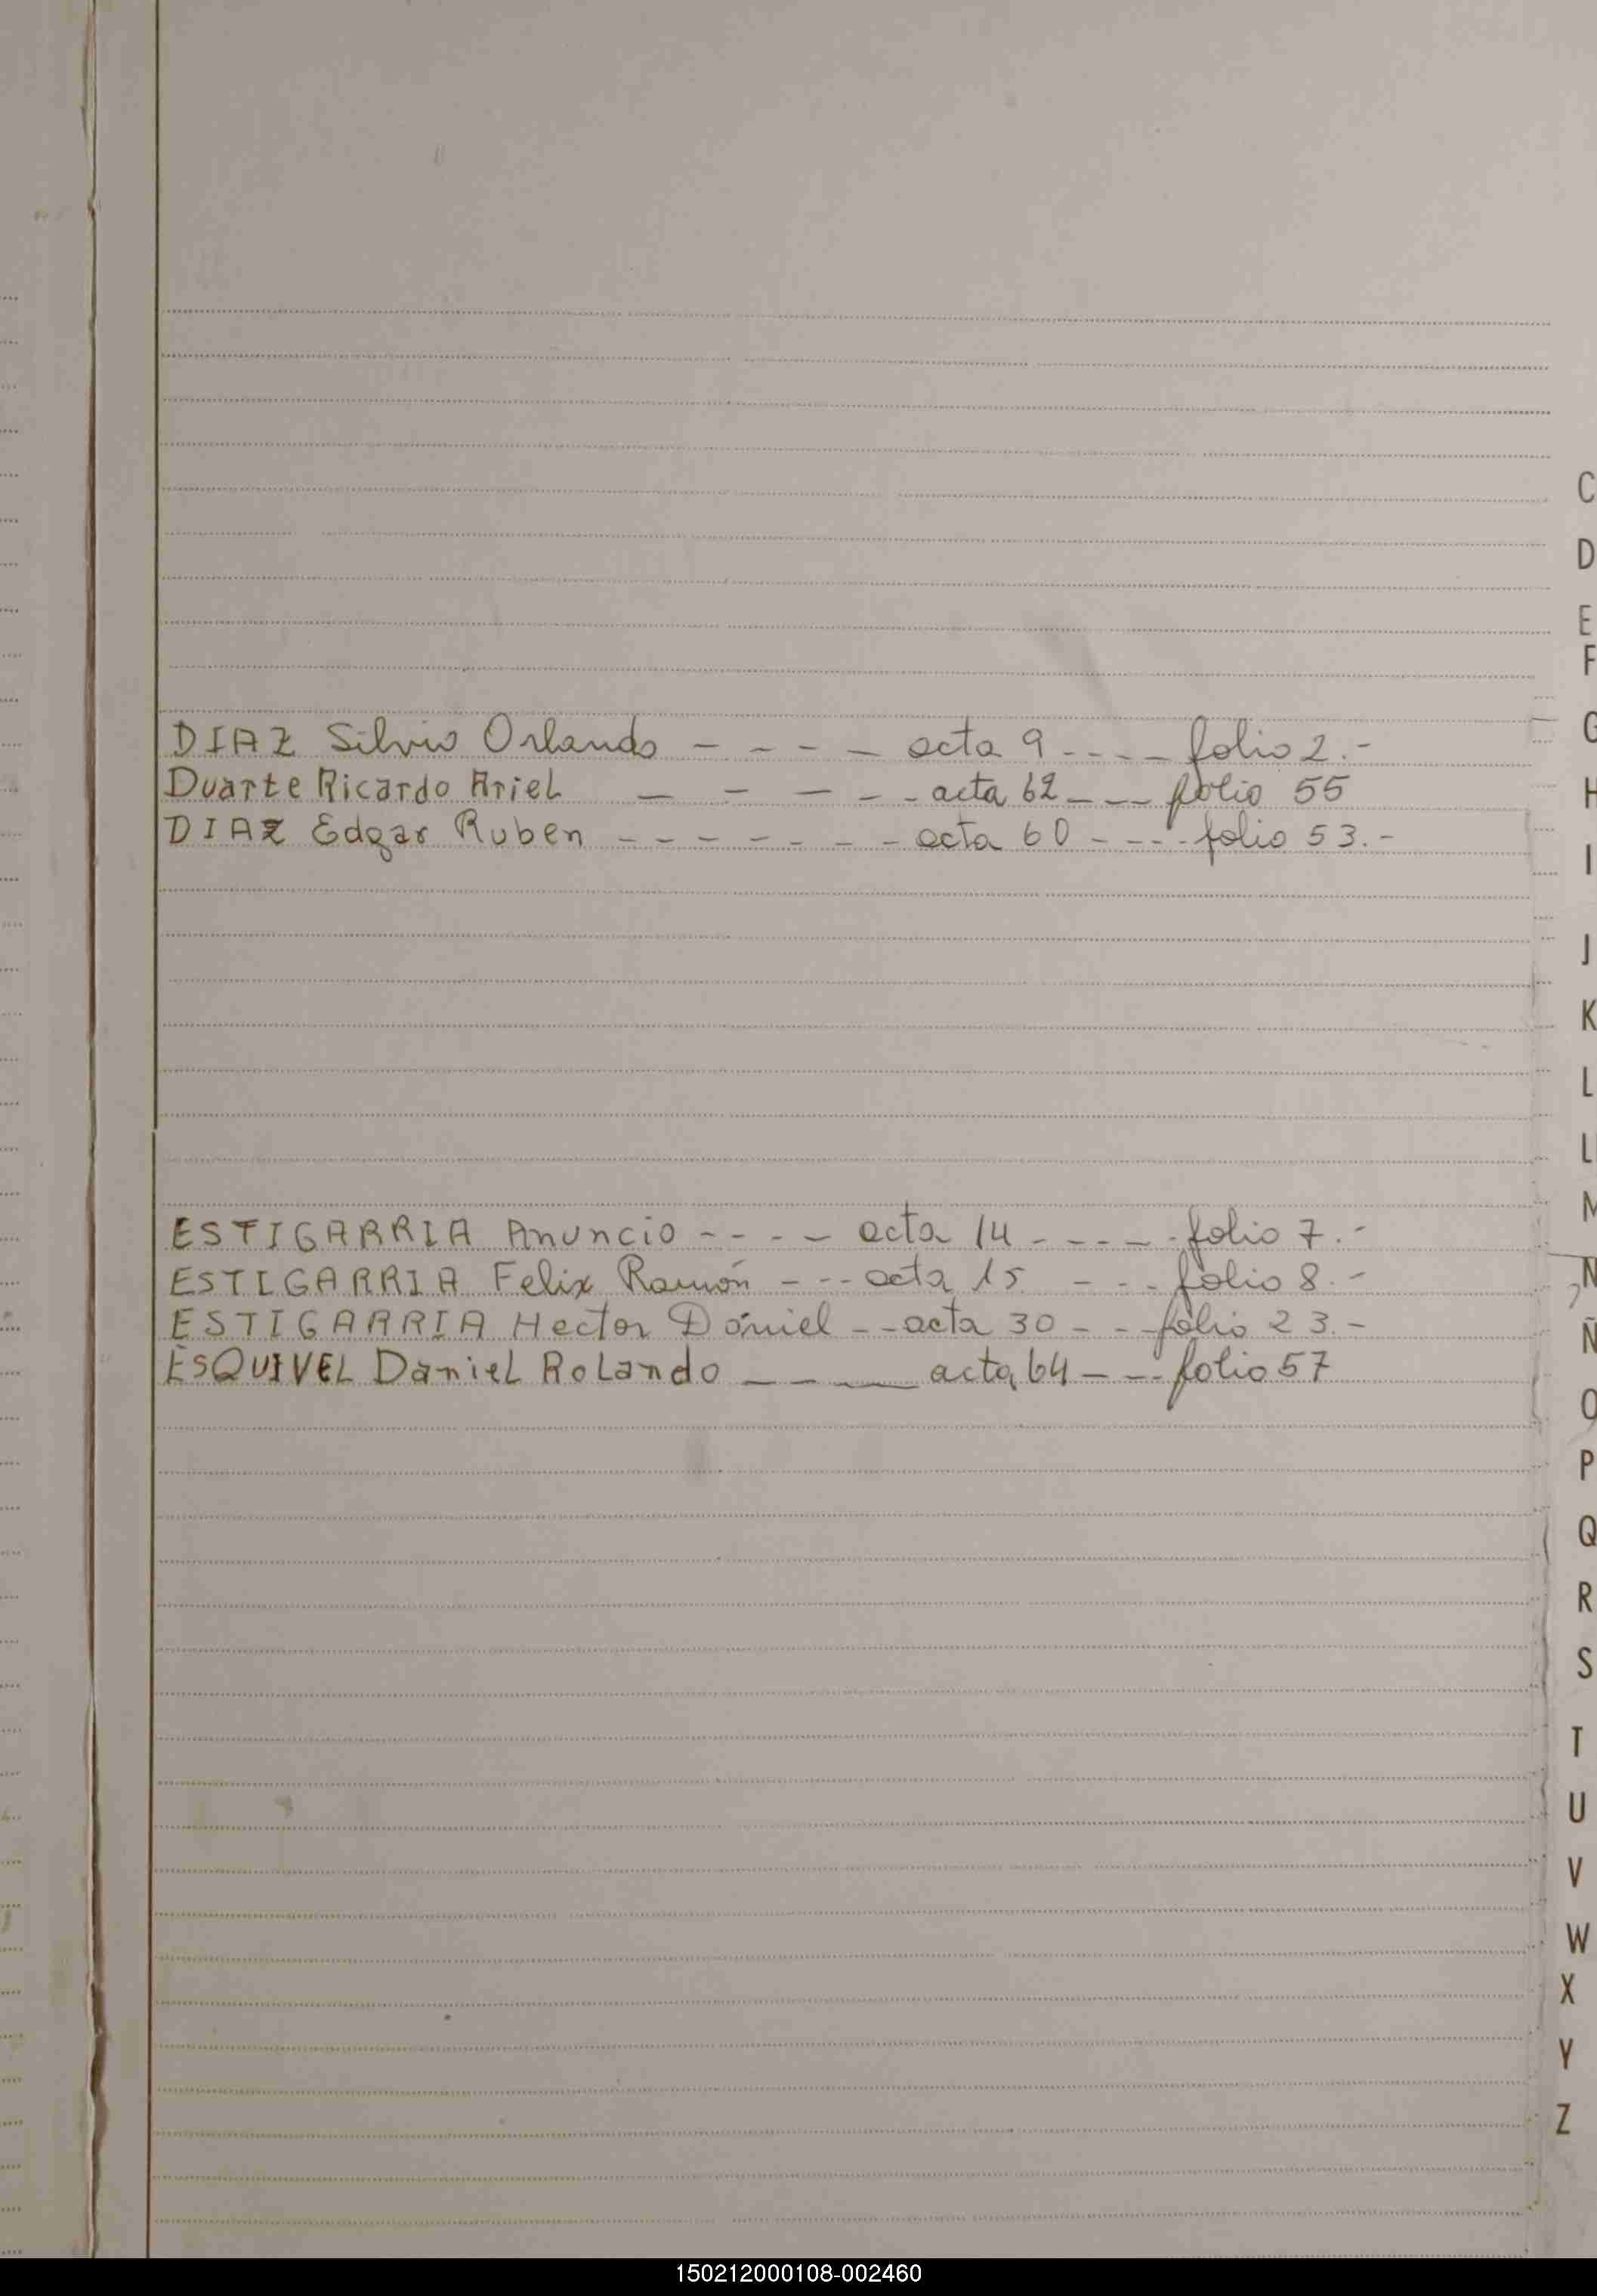 C
D
E
F
G
DIAZ Silvio Orlando - - - - acta 9 - - - - folio 2.-
Duarte Ricardo Ariel - - - - - acta 62 - - - folio 55
H
DIAZ Edgar Ruben - - - - - - - - acta 60 - - - - folio 53.-
I
J
K
L
L
M
ESTIGARRIA Anuncio - - - - acta 14 - - - - - folio 7.-
ESTIGARRIA Felix Ramón - - - acta 15 - - - folio 8.-
N
ESTIGARRIA Hector Daniel - - acta 30 - - - folio 23.-
Ñ
ESQUIVEL Daniel Rolando - - - - acta 64 - - - folio 57
O
P
Q
R
S
T
U
V
W
X
Y
Z
150212000108-002460